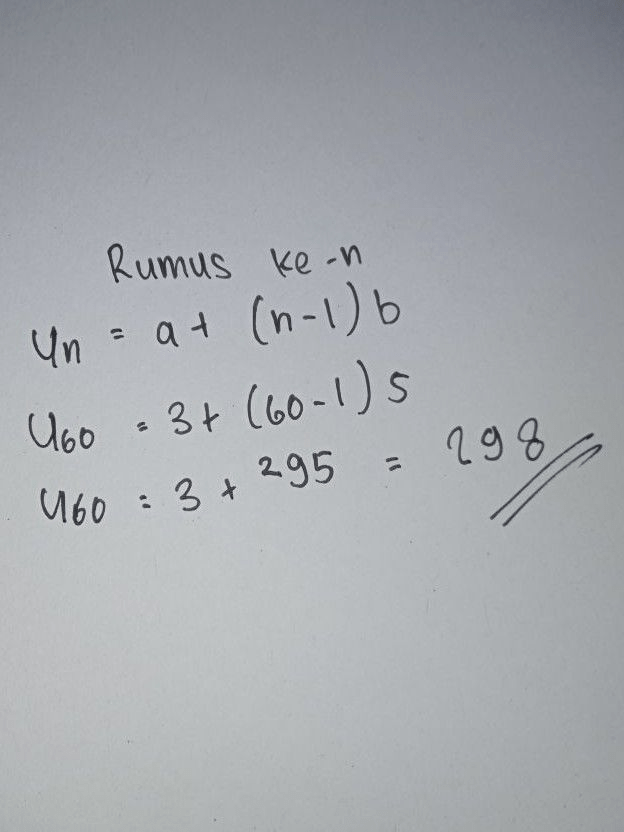 Rumus ke-n
Un = a + (n-1) b
U60 = 3 + (60-1) 5
U60 = 3 + 295 = 298